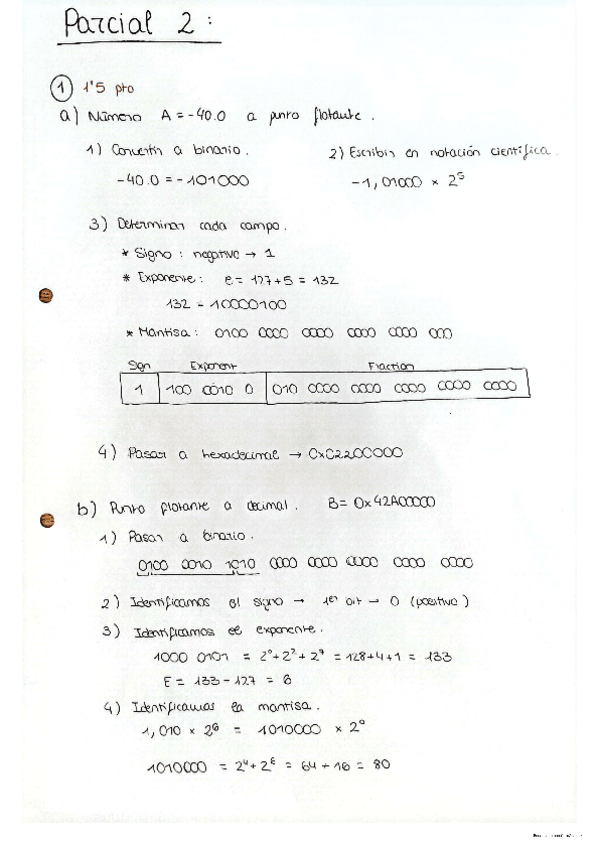 Parcial 2 :
① 1'5 pto
a) Número A = -40.0 a punto flotante.
1) Convertir a binario.
-40.0 = -101000
2) Escribir en notación científica.
-1,01000 × 2⁵
3) Determinar cada campo.
* Signo : negativo → 1
* Exponente : e = 127 + 5 = 132
132 - 10000100
* Mantisa : 0100 0000 0000 0000 0000 000
Sign Exponent Fraction
1 100 0010 0 010 0000 0000 0000 0000 0000
4) Pasar a hexadecimal → 0xC2200000
b) Punto flotante a decimal. B = 0x42A00000
1) Pasar a binario.
0100 0010 1010 0000 0000 0000 0000 0000
2) Identificamos el signo → 1er bit → 0 (positivo)
3) Identificamos el exponente.
1000 0101 = 2⁰ + 2² + 2⁷ = 128 + 4 + 1 = 133
E = 133 - 127 = 6
4) Identificamos la mantisa.
1,010 × 2⁶ = 1010000 × 2⁰
1010000 = 2⁴ + 2⁶ = 64 + 16 = 80